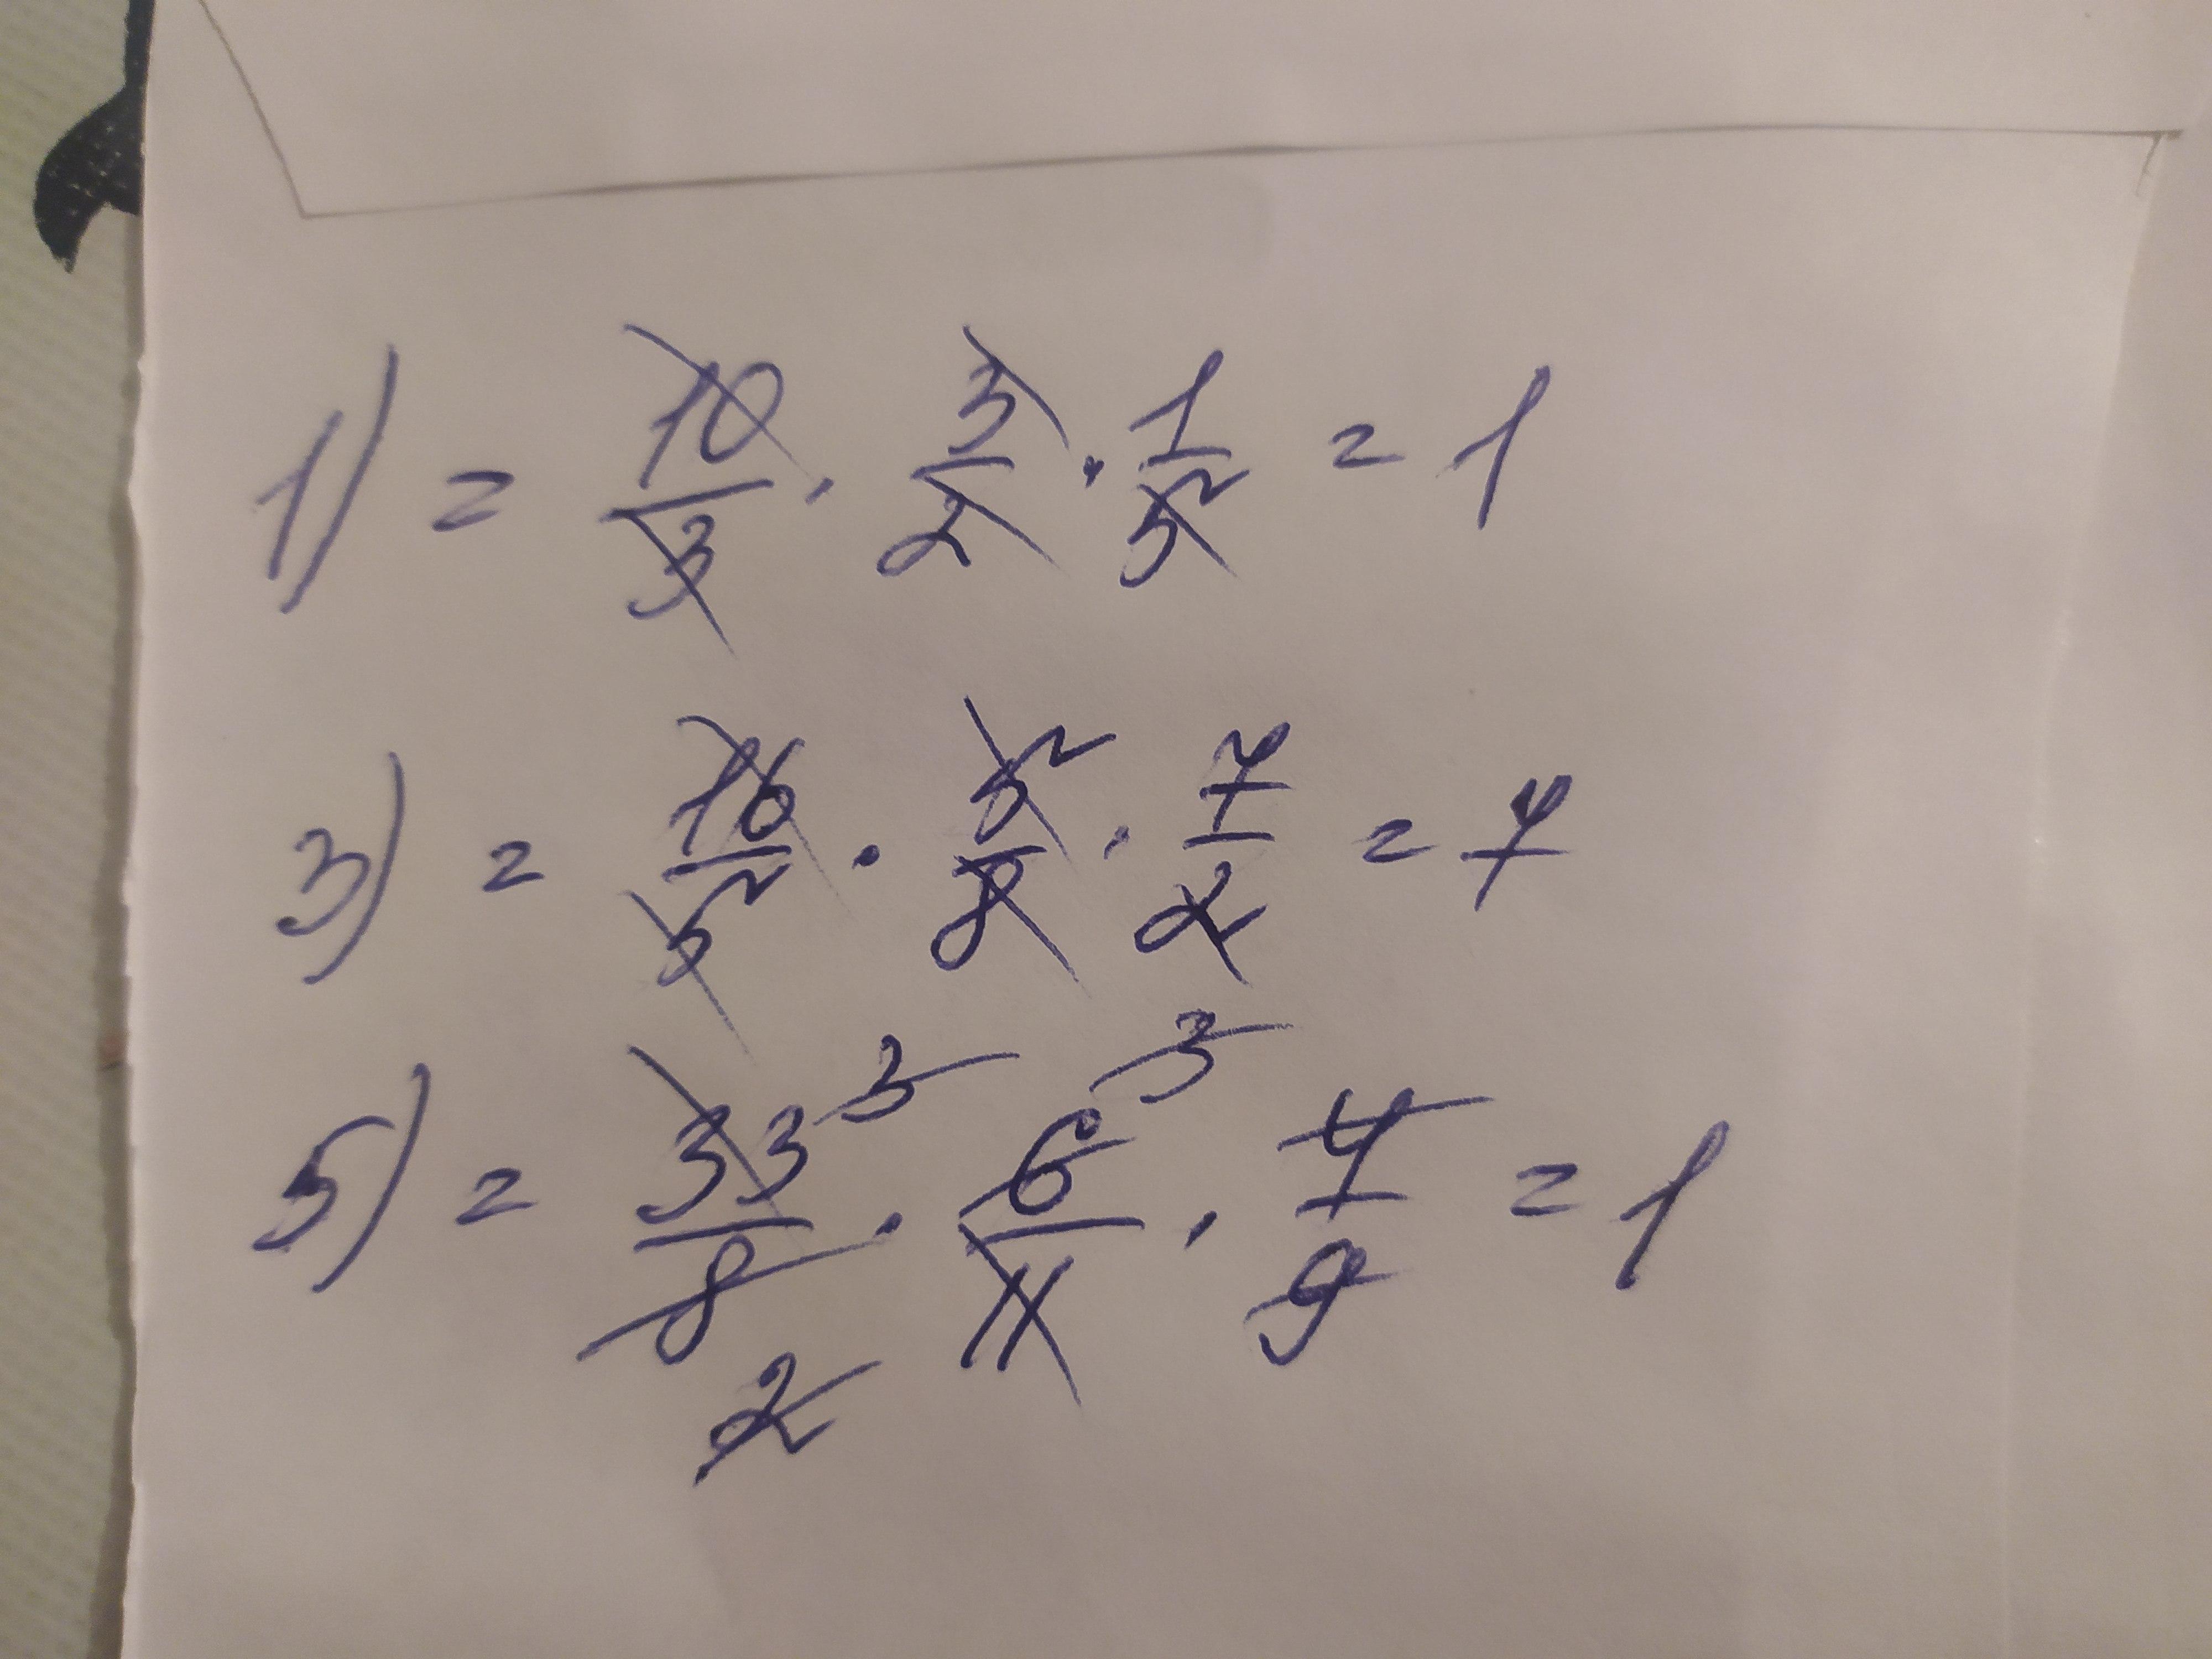 1) = 10/3 · 3/2 · 1/5 = 1
3) = 16/5 · 5/8 · 7/2 = 7
5) = 33 3/8 2 · 6 3/11 · 4/9 = 1